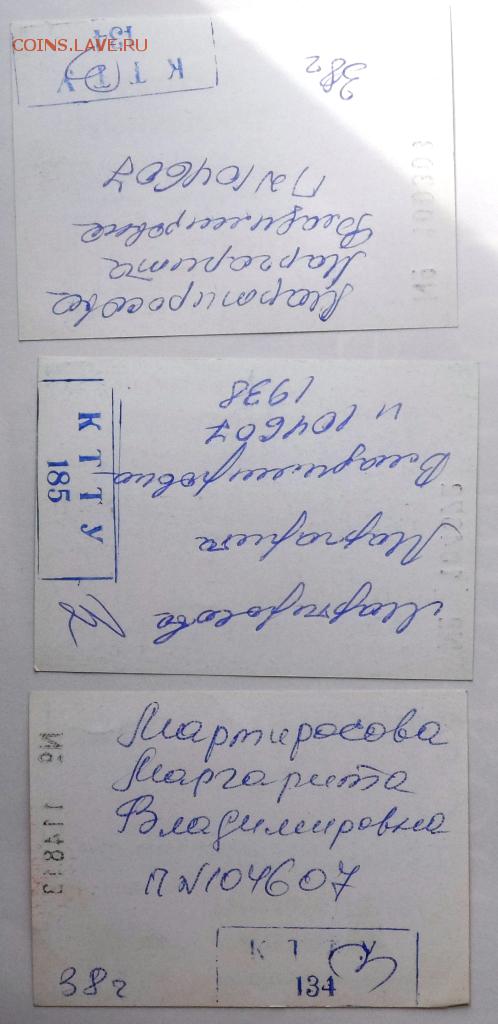 COINS.LAVE.RU
КТТУ
134
38г
Мартиросова
Маргарита
Владимировна
П№104607
Мартиросова
Маргарита
Владимировна
И 104607
1938
КТТУ
185
Мартиросова
Маргарита
Владимировна
П№104607
МБ 114813
КТТУ
134
38г